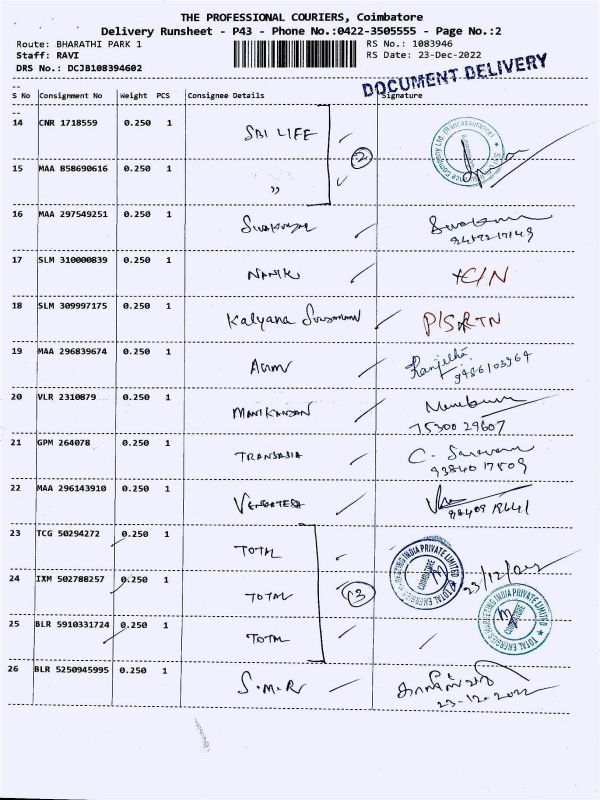 THE PROFESSIONAL COURIERS, Coimbatore
Delivery Runsheet - P43 - Phone No.:0422-3505555 - Page No.:2
Route: BHARATHI PARK 1 RS No.: 1083946
Staff: RAVI RS Date: 23-Dec-2022
DRS No.: DCJB108394602
DOCUMENT DELIVERY
--
S No Consignment No Weight PCS Consignee Details Signature
--
14 CNR 1718559 0.250 1 SBI LIFE
2
15 MAA 858690616 0.250 1 ,,
16 MAA 297549251 0.250 1
17 SLM 310000839 0.250 1 C/N
18 SLM 309997175 0.250 1 Kalyana
19 MAA 296839674 0.250 1 Ranjitha
9486103964
20 VLR 2310879 0.250 1 MANIKANDAN
75300 29607
21 GPM 264078 0.250 1 TRANSASIA C. Saravanan
93840 17509
22 MAA 296143910 0.250 1 VENGATESH
23 TCG 50294272 0.250 1 TOTAL
TOTAL ENERGIES MARKETING INDIA PRIVATE LIMITED
COIMBATORE
24 IXM 502788257 0.250 1 TOTAL 3
23/12/22
25 BLR 5910331724 0.250 1 TOTAL
TOTAL ENERGIES MARKETING INDIA PRIVATE LIMITED
COIMBATORE
26 BLR 5250945995 0.250 1 S.M.R
23-12-2022